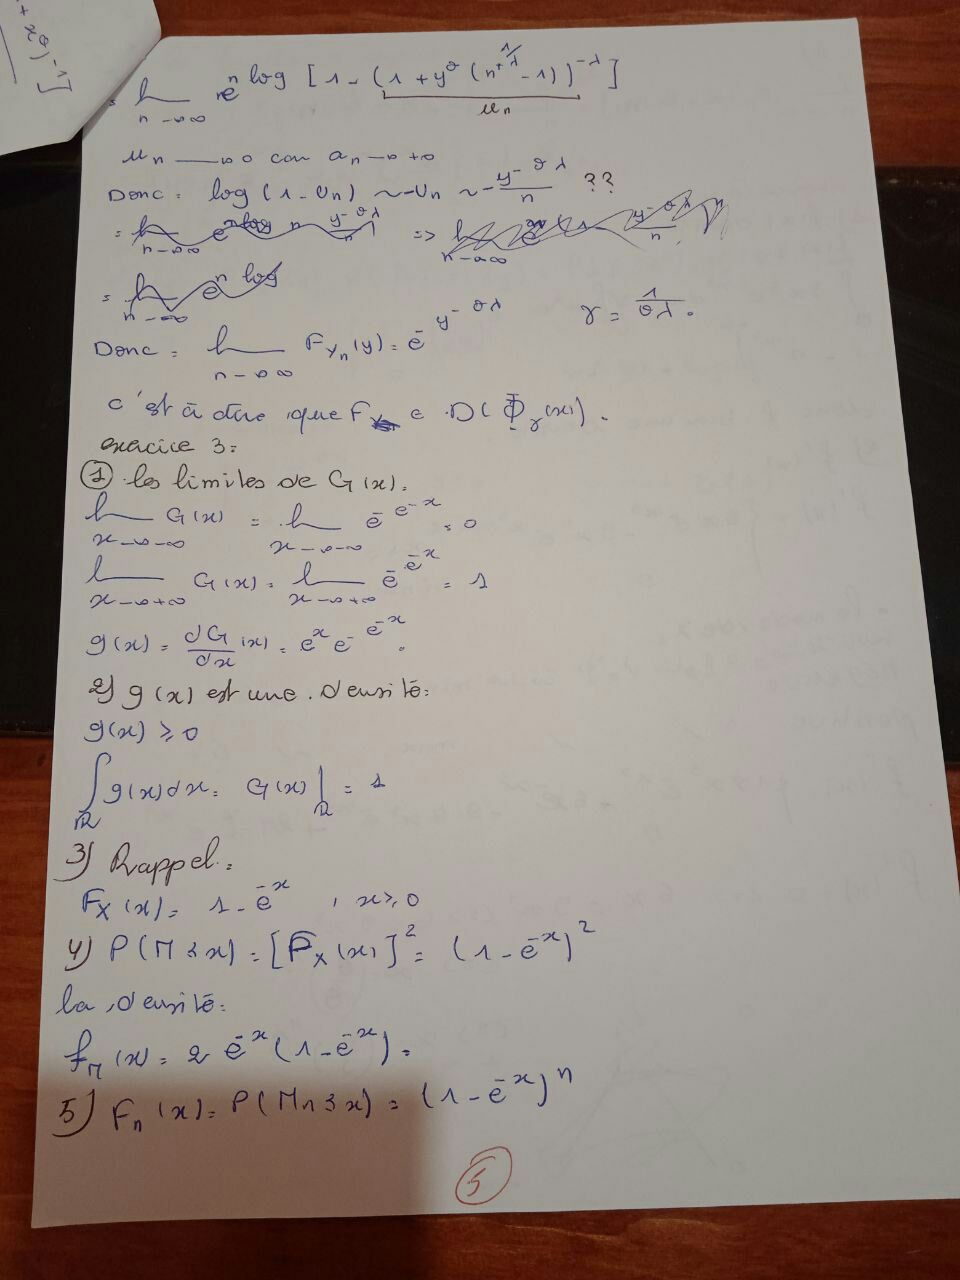 + x^θ)^-1]
= lim n→∞ e^n log [1 - (1 + y^θ (n^+1/λ - 1))^-λ]
u_n
u_n → 0 car a_n → +∞
Donc : log(1 - u_n) ~ -u_n ~ - y^-θλ / n ??
Donc : lim n→∞ F_Yn(y) = e^-y^-θλ γ = 1/θλ.
c'est à dire que F_X ∈ D(Φ_γ(x)).
exercice 3 :
① les limites de G(x).
lim x→-∞ G(x) = lim x→-∞ e^-e^-x = 0
lim x→+∞ G(x) = lim x→+∞ e^-e^-x = 1
g(x) = dG/dx (x) = e^x e^-e^-x.
2) g(x) est une densité :
g(x) ≥ 0
∫_ℝ g(x)dx = G(x)|_ℝ = 1
3) Rappel :
F_X(x) = 1 - e^-x , x ≥ 0
4) P(M ≤ x) = [F_X(x)]^2 = (1 - e^-x)^2
la densité :
f_M(x) = 2 e^-x (1 - e^-x).
5) F_n(x) = P(M_n ≤ x) = (1 - e^-x)^n
5